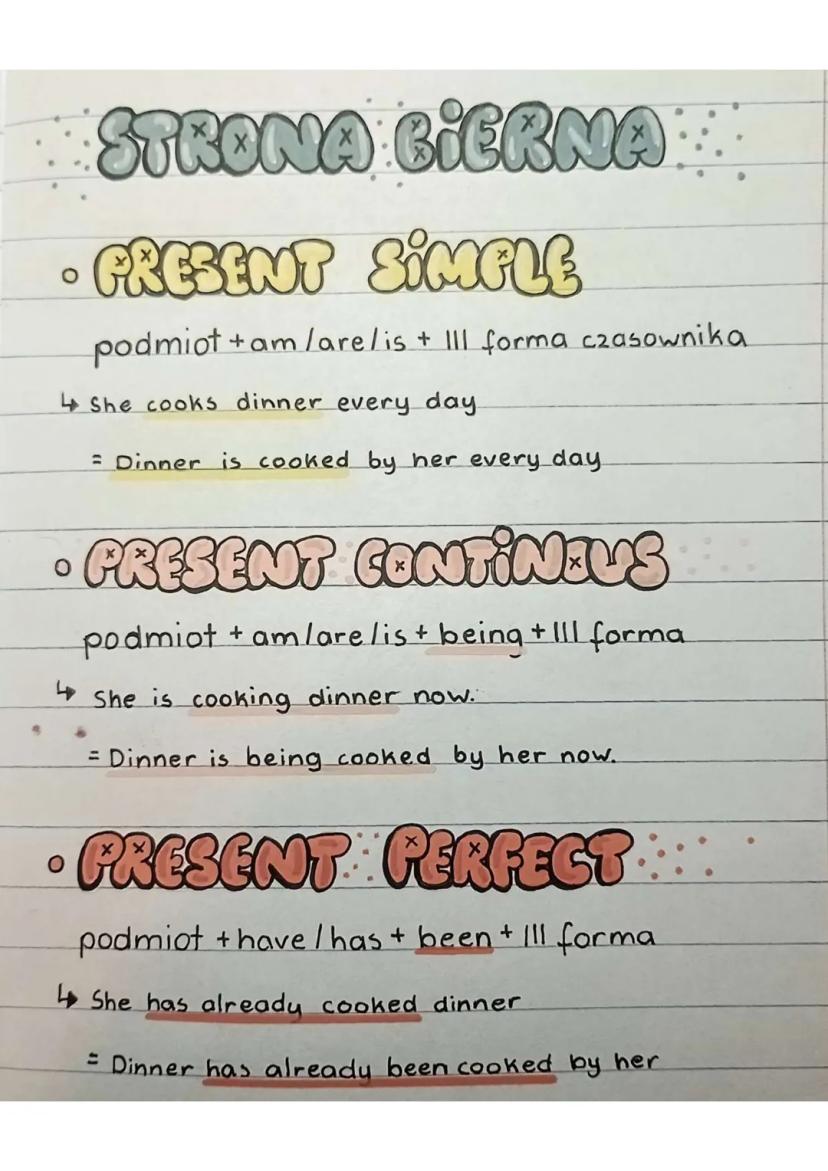 STRONA BIERNA
PRESENT SiMPLE
podmiot + am/are/is + III forma czasownika
↳ She cooks dinner every day
= Dinner is cooked by her every day
PRESENT CONTiNOUS
podmiot + am/are/is + being + III forma
↳ She is cooking dinner now.
= Dinner is being cooked by her now.
PRESENT PERFECT
podmiot + have/has + been + III forma
↳ She has already cooked dinner
= Dinner has already been cooked by her